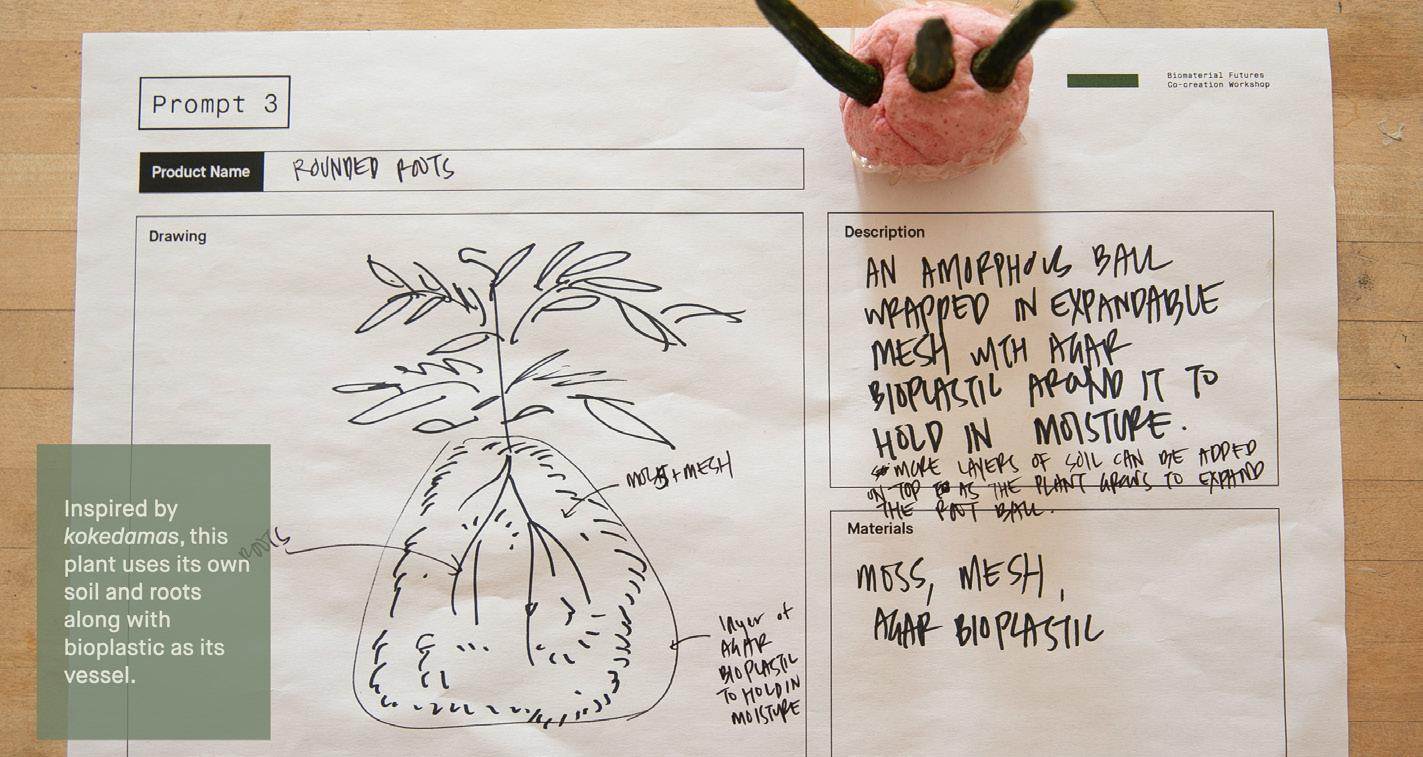 Prompt 3
Biomaterial Futures
Co-creation Workshop
Product Name
ROUNDED ROOTS
Drawing
MOSS + MESH
ROOTS
layer of
AGAR
BIOPLASTIC
TO HOLD IN
MOISTURE
Description
AN AMORPHOUS BALL
WRAPPED IN EXPANDABLE
MESH WITH AGAR
BIOPLASTIC AROUND IT TO
HOLD IN MOISTURE.
MORE LAYERS OF SOIL CAN BE ADDED
ON TOP AS THE PLANT GROWS TO EXPAND
THE ROOT BALL.
Materials
MOSS, MESH,
AGAR BIOPLASTIC
Inspired by
kokedamas, this
plant uses its own
soil and roots
along with
bioplastic as its
vessel.